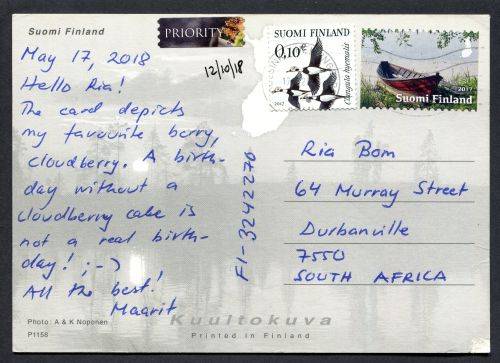 Suomi Finland
PRIORITY
SUOMI FINLAND
0,10€
Clangula hyemalis
2017
2017
Suomi Finland
12/10/18
May 17, 2018
Hello Ria!
The card depicts
my favourite berry,
cloudberry. A birth-
day without a
cloudberry cake is
not a real birth-
day! ;-)
All the best!
Maarit
FI-3242270
Ria Bom
64 Murray Street
Durbanville
7550
SOUTH AFRICA
Photo: A & K Noponen
P1158
Kuultokuva
Printed in Finland